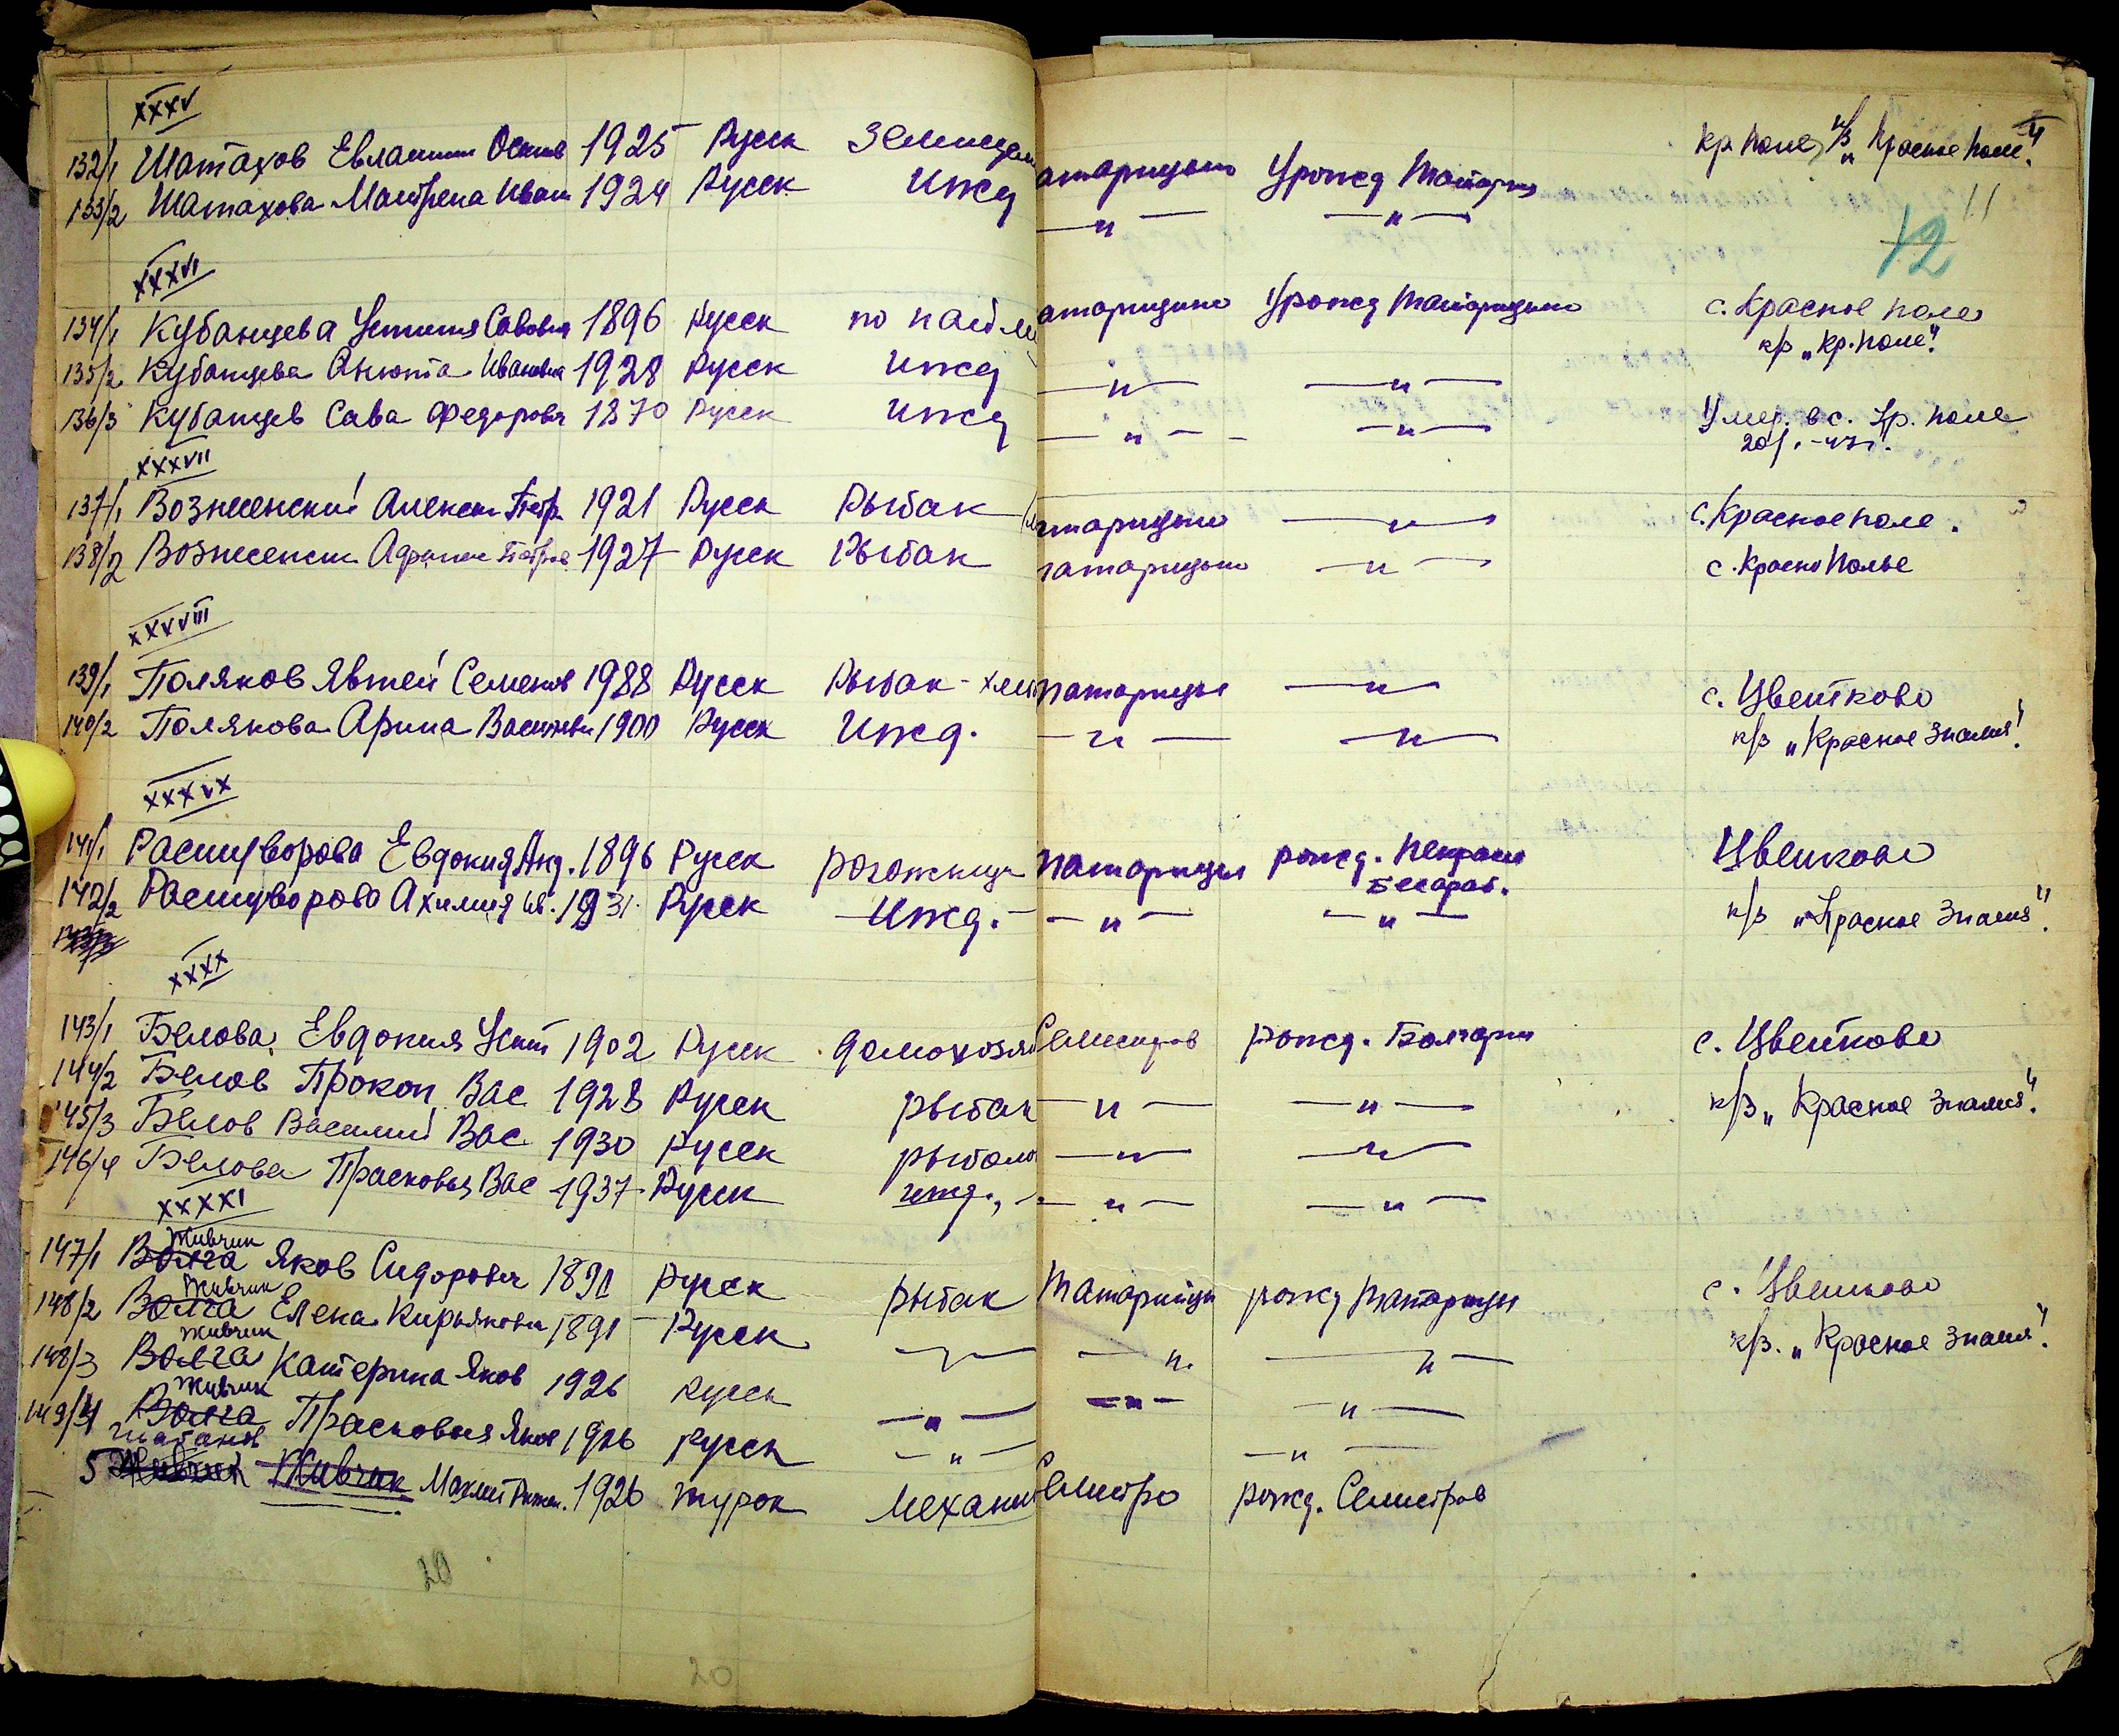 XXXV
132/1 Шатахов Евлампи Осипов 1925 Русск Землидел атарицыно Урожд Татариц Кр Поле, к/з „Красное Поле"
133/2 Шатахова Матрена Иван 1924 Русск Ижд —"— —"— 11
12
XXXVI
134/1 Кубанцева Устиния Савовна 1896 Русск по найм атарицыно Урожд Татарицыно с. Красное поле
135/2 Кубанцева Анюта Ивановна 1928 Русск Ижд —"— —"— к/з „Кр. Поле".
136/3 Кубанцев Сава Федорович 1870 Русск Ижд —"— —"— Умер. в с. Кр. Поле
XXXVII
137/1 Вознесенский Алексей Петр. 1921 Русск Рыбак атарицыно —"— с. Красное поле.
138/2 Вознесенск Адриан Петров 1927 Русск Рыбак атарицыно —"— с. Красно Полье
XXXVIII
139/1 Поляков Явтей Семенов 1988 Русск Рыбак - хле татарицы —"— с. Цветково
140/2 Полякова Арина Васильевн 1900 Русск Ижд. —"— —"— к/з „Красное Знамя".
XXXIX
141/1 Растуворова Евдокия Анд. 1896 Русск рогожница Татарицы рожд. Некрасо Цветково
Бесараб.
142/2 Растуворова Ахимия Ив. 1931 Русск Ижд. —"— —"— к/з „Красное Знамя".
XXXX
143/1 Белова Евдокия Устт 1902 Русск домохозяй Семистров рожд. Болгари с. Цветково
144/2 Белов Прокоп Вас 1928 Русск рыбак —"— —"— к/з „Красное Знамя".
145/3 Белов Василий Вас. 1930 Русск рыболо —"— —"—
146/4 Белова Прасковья Вас 1937 Русск ижд., —"— —"—
XXXXI
Живчик
147/1 Волга Яков Сидорович 1891 Русск рыбак Татарицы рожд Татарицы с. Цветково
Живчик
148/2 Волга Елена Кирьяковн 1891 Русск —"— —"— —"— к/з. „Красное Знамя".
Живчик
148/3 Волга Катерина Яков 1926 Русск —"— —"— —"—
Живчик
149/4 Волга Прасковия Яков 1926 Русск —"— —"—
Шабанов
5 Живчик Живчик 1926 турок механи Семистро рожд. Семистров
20
20